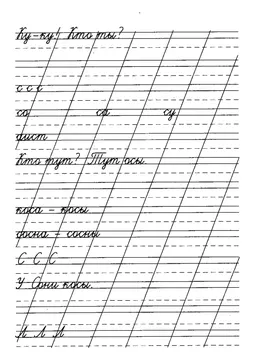 Ку-ку! Кто ты?
с с с
со са су
лист
Кто тут? Тут осы.
коса - косы
сосна - сосны
С С С
У Сони косы.
Л Л Л